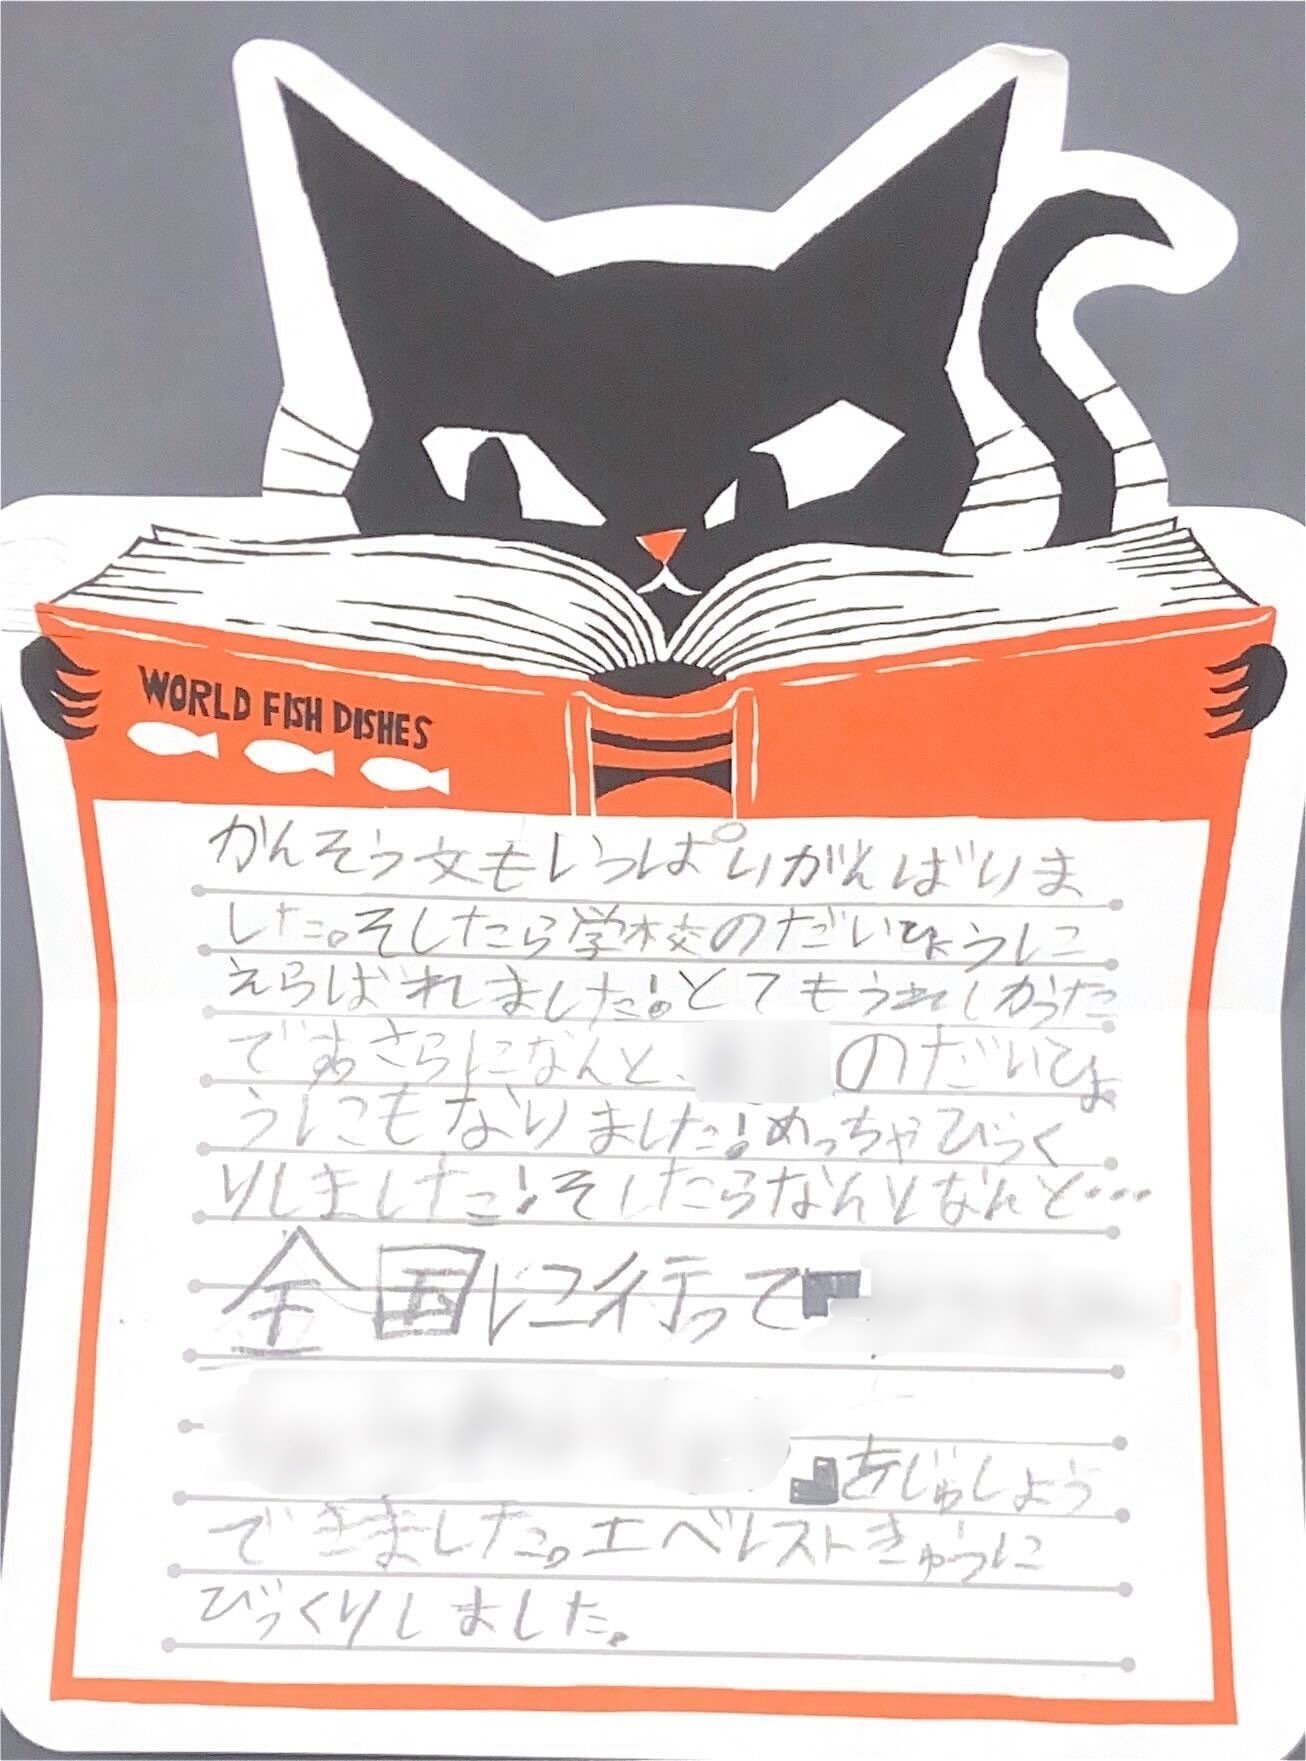 WORLD FISH DISHES
かんそう文もいっぱいがんばりま
した。そしたら学校のだいひょうに
えらばれました!。とてもうれしかった
です。さらになんと、
のだいひょ
うにもなりました!めっちゃびっく
りしました!そしたらなんとなんと…
全国に行って『
』をじゅしょう
できました。エベレストきゅうに
びっくりしました。